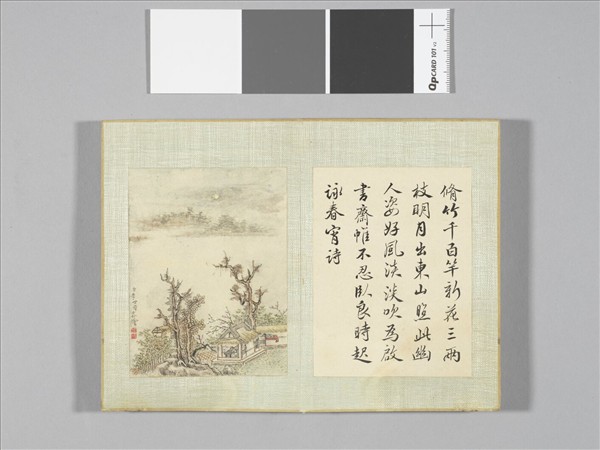 脩竹千百竿新花三兩
枝明月出東山照此幽
人姿好風淡淡吹為啟
書齋帷不忍臥良時起
詠春宵詩
QPCARD 101